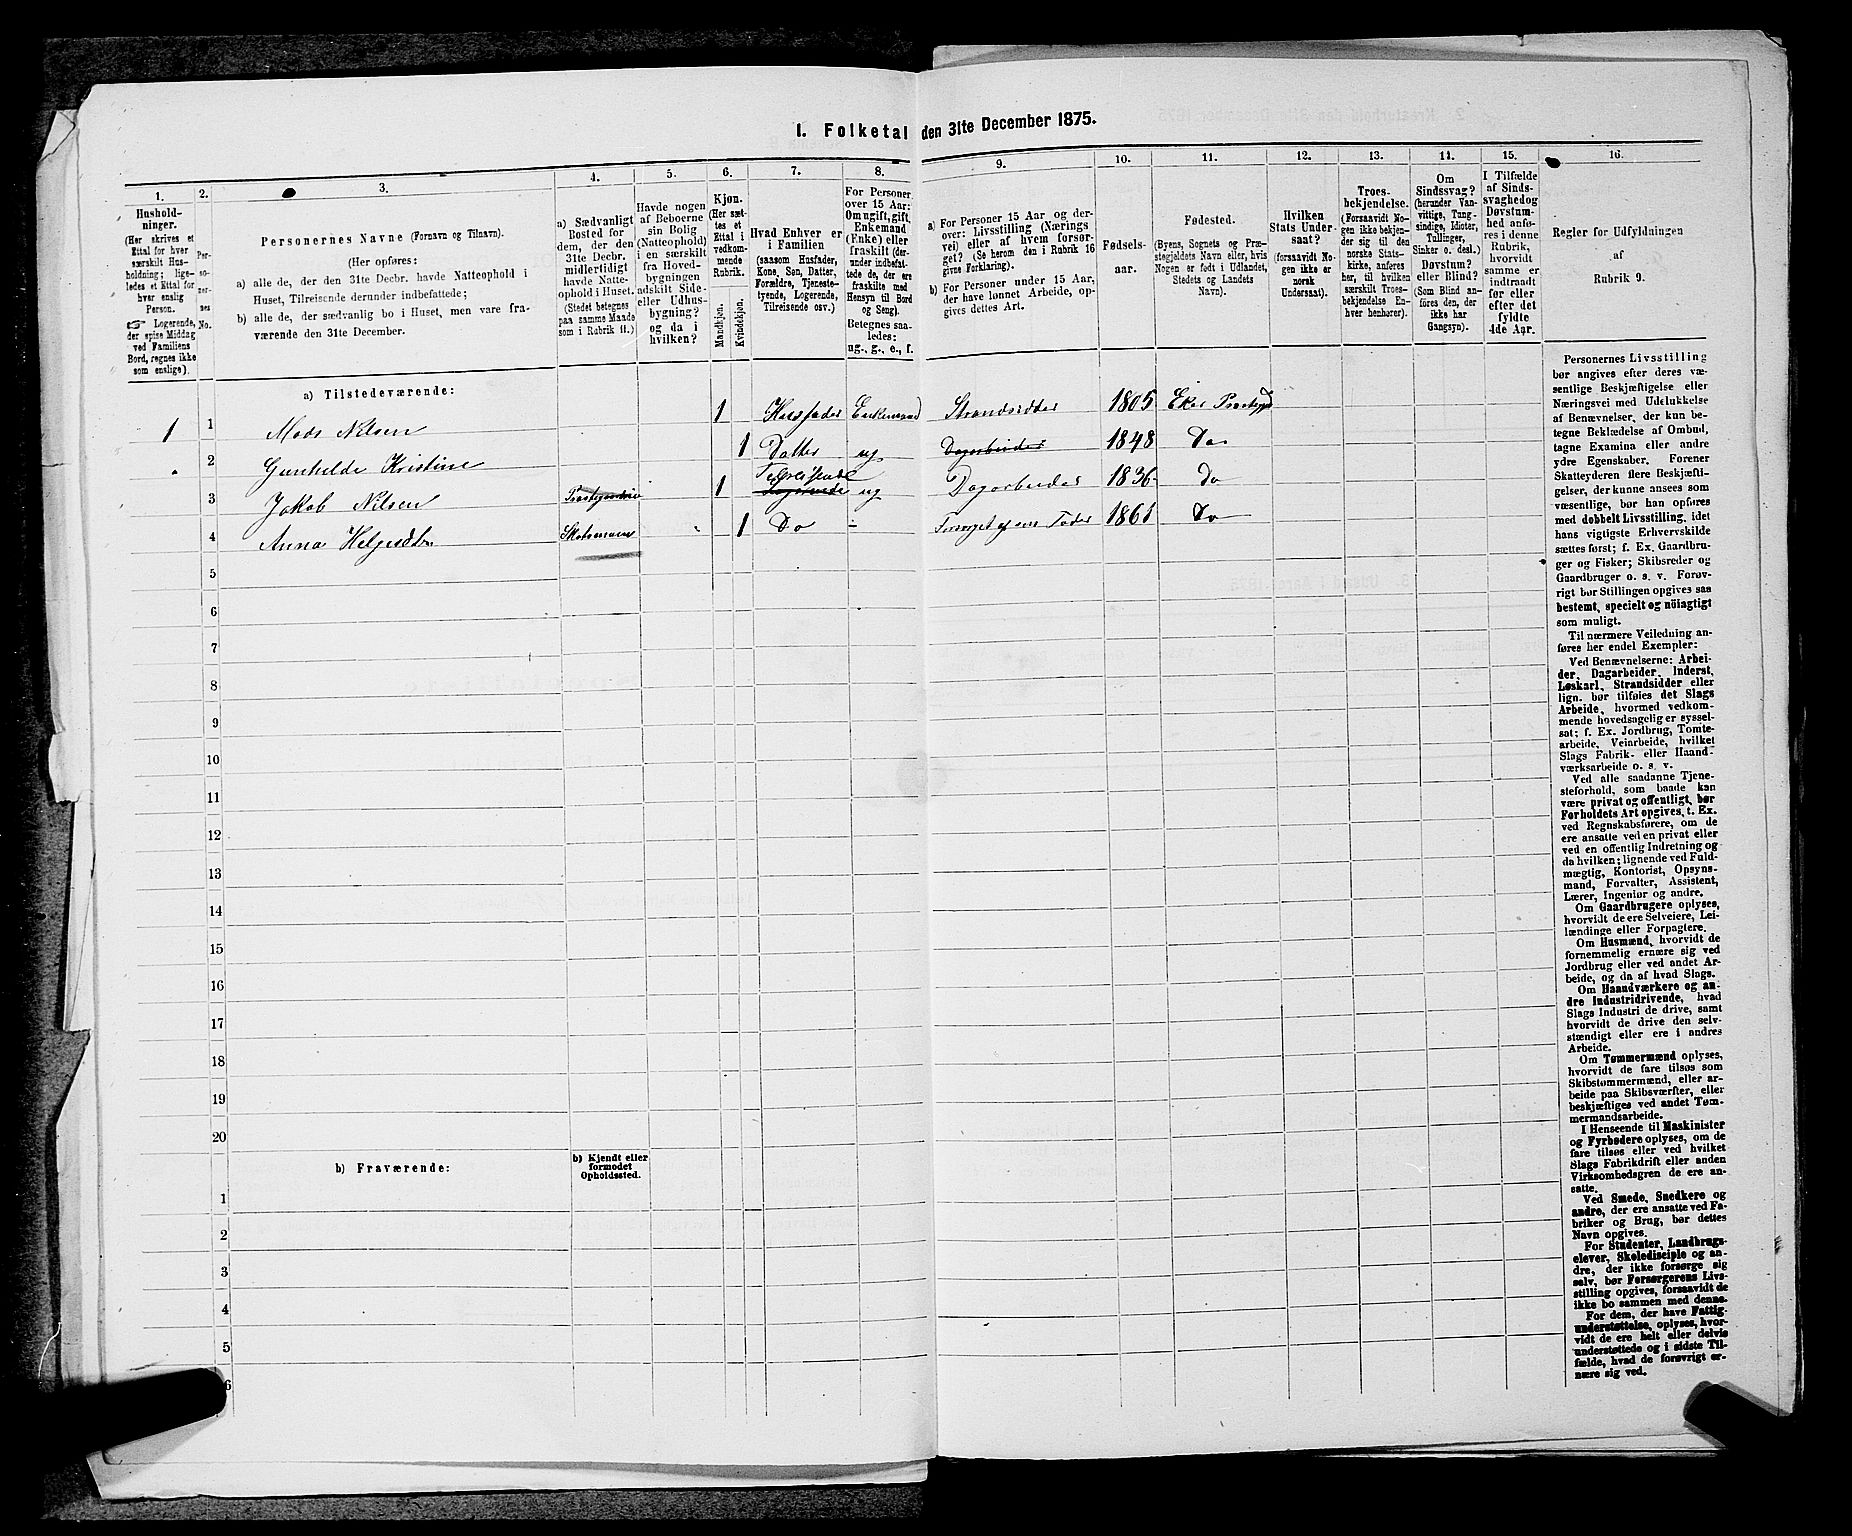 I. Folketal den 31te December 1875.
1.
2.
3.
4.
5.
6.
7.
8.
9.
10.
11.
12.
13.
14.
15.
16.
Hushold-
ninger.
(Her skrives et
Ettal for hver
særskilt Hus-
holdning; lige-
ledes et Ettal for
hver enslig
Person.
☞ Logerende,
der spise Middag
ved Familiens
Bord, regnes ikke
som enslige).
Per-
so-
ner-
nes
No.
Personernes Navne (Fornavn og Tilnavn).
(Her opføres:
a) alle de, der den 31te Decbr. havde Natteophold i
Huset, Tilreisende derunder indbefattede;
b) alle de, der sædvanlig bo i Huset, men vare fra-
værende den 31te December.
a) Sædvanligt
Bosted for
dem, der den
31te Decbr.
midlertidigt
havde Natte-
ophold i Huset.
(Stedet betegnes
paa samme Maade
som i Rubrik 11.)
Havde nogen
af Beboerne
sin Bolig
(Natteophold)
i en særskilt
fra Hoved-
bygningen
adskilt Side-
eller Udhus-
bygning?
og da i
hvilken?
Kjøn.
(Her sæt-
tes et
Ettal i
vedkom-
mende
Rubrik.
Mandkjøn.
Kvindekjøn.
Hvad Enhver er
i Familien
(saasom Husfader,
Kone, Søn, Datter,
Forældre, Tjeneste-
tyende, Logerende,
Tilreisende osv.)
For Personer
over 15 Aar:
Om ugift, gift,
Enkemand
(Enke) eller
fraskilt (der-
under indbefat-
tede de, der ere
fraskilte med
Hensyn til Bord
og Seng).
Betegnes saa-
ledes:
ug., g., e., f.
a) For Personer 15 Aar og der-
over: Livsstilling (Nærings
vei) eller af hvem forsør-
get? (Se herom den i Rubrik 16
givne Forklaring).
b) For Personer under 15 Aar,
der have lønnet Arbeide, op-
gives dettes Art.
Fødsels-
aar.
Fødested.
(Byens, Sognets og Præ-
stegjeldets Navn eller, hvis
Nogen er født i Udlandet,
Stedets og Landets
Navn).
Hvilken
Stats Under-
saat?
(forsaavidt No-
gen ikke er
norsk
Undersaat).
Troes-
bekjendelse.
(Forsaavidt No-
gen ikke bekjen-
der sig til den
norske Stats-
kirke, anføres
her, til hvilken
særskilt Troes-
bekjendelse En-
hver henhører).
Om
Sindssvag?
(herunder Van-
vittige, Tung-
sindige, Idioter,
Tullinger,
Sinker o. desl.)
Døvstum?
eller Blind?
(Som Blind an-
føres den, der
ikke har
Gangsyn).
I Tilfælde
af Sinds-
svaghed og
Døvstum-
hed anfø-
res i denne
Rubrik,
hvorvidt
samme er
indtraadt
før eller
efter det
fyldte
4de Aar.
Regler for Udfyldningen
af
Rubrik 9.
a) Tilstedeværende:
1 1 Mads Nilsen 1 Husfader Enkemand Strandsidder 1805 Eker
2 Gunhilde Kristine 1 Datter ug Dagarbeider 1848 Do
3 Jakob Nilsen 1 Tilreisende Logerende ug Dagarbeider 1836 Do
4 Anna Helgesdtr 1 Do - Fader 1861 Do
5
6
7
8
9
10
11
12
13
14
15
16
17
18
19
20
b) Fraværende:
b) Kjendt eller
formodet
Opholdssted.
1
2
3
4
5
6
Personernes Livsstilling
bør angives efter deres væ-
sentlige Beskjæftigelse eller
Næringsvei med Udelukkelse
af Benævnelser, der kun be-
tegne Beklædelse af Ombud,
tagne Examina eller andre
ydre Egenskaber. Forener
Skatteyderen flere Beskjæfti-
gelser, der kunne ansees som
væsentlige, bør han opføres
med dobbelt Livsstilling, idet
hans vigtigste Erhvervskilde
sættes først; f. Ex. Gaardbru-
ger og Fisker; Skibsreder og
Gaardbruger o. s. v. Forøv-
rigt bør Stillingen opgives saa
bestemt, specielt og nöiagtigt
som muligt.
Til nærmere Veiledning an-
føres her endel Exempler:
Ved Benævnelserne: Arbei-
der, Dagarbeider, Inderst,
Løskarl, Strandsidder eller
lign. bør tilføies det Slags
Arbeide, hvormed vedkom-
mende hovedsagelig er syssel-
sat; f. Ex. Jordbrug, Tomte-
arbeide, Veiarbeide, hvilket
Slags Fabrik- eller Haand-
værksarbeide o. s. v.
Ved alle saadanne Tjene-
steforhold, som baade kan
være privat og offentligt, bør
Forholdets Art opgives, t. Ex.
ved Regnskabsførere, om de
ere ansatte ved en privat eller
ved en offentlig Indretning og
da hvilken; lignende ved Fuld-
mægtig, Kontorist, Opsyns-
mand, Forvalter, Assistent,
Lærer, Ingeniør og andre.
Om Gaardbrugere oplyses,
hvorvidt de ere Selveiere, Lei-
lændinge eller Forpagtere.
Om Husmænd, hvorvidt de
fornemmelig ernære sig ved
Jordbrug eller ved andet Ar-
beide, og da af hvad Slags.
Om Haandværkere og an-
dre Industridrivende, hvad
Slags Industri de drive, samt
hvorvidt de drive den selv-
stændigt eller ere i andres
Arbeide.
Om Tømmermænd oplyses,
hvorvidt de fare tilsøs som
Skibstømmermænd, eller ar-
beide paa Skibsværfter, eller
beskjæftiges ved andet Tøm-
mermandsarbeide.
I Henseende til Maskinister
og Fyrbødere oplyses, om de
fare tilsøs eller ved hvilket
Slags Fabrikdrift eller anden
Virksomhedsgren de ere an-
satte.
Ved Smede, Snedkere og
andre, der ere ansatte ved Fa-
briker og Brug, bør dettes
Navn opgives.
For Studenter, Landbrugs-
elever, Skoledisciple og an-
dre, der ikke forsørge sig
selv, bør Forsørgerens Livs-
stilling opgives, forsaavidt de
ikke bo sammen med denne.
For dem, der have Fattig-
understøttelse, oplyses, hvor-
vidt de ere helt eller delvis
understøttede og i sidste Til-
fælde, hvad de forøvrigt er-
nære sig ved.